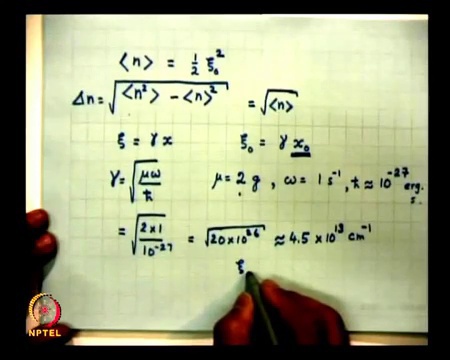 ⟨n⟩ = 1/2 ξ₀²
Δn = √(⟨n²⟩ - ⟨n⟩²) = √⟨n⟩
ξ = γx ξ₀ = γ x₀
γ = √(μω/ħ) μ = 2 g, ω = 1 s⁻¹, ħ ≈ 10⁻²⁷ erg. s.
= √(2×1/10⁻²⁷) = √(20×10²⁶) ≈ 4.5 × 10¹³ cm⁻¹
ξ
NPTEL